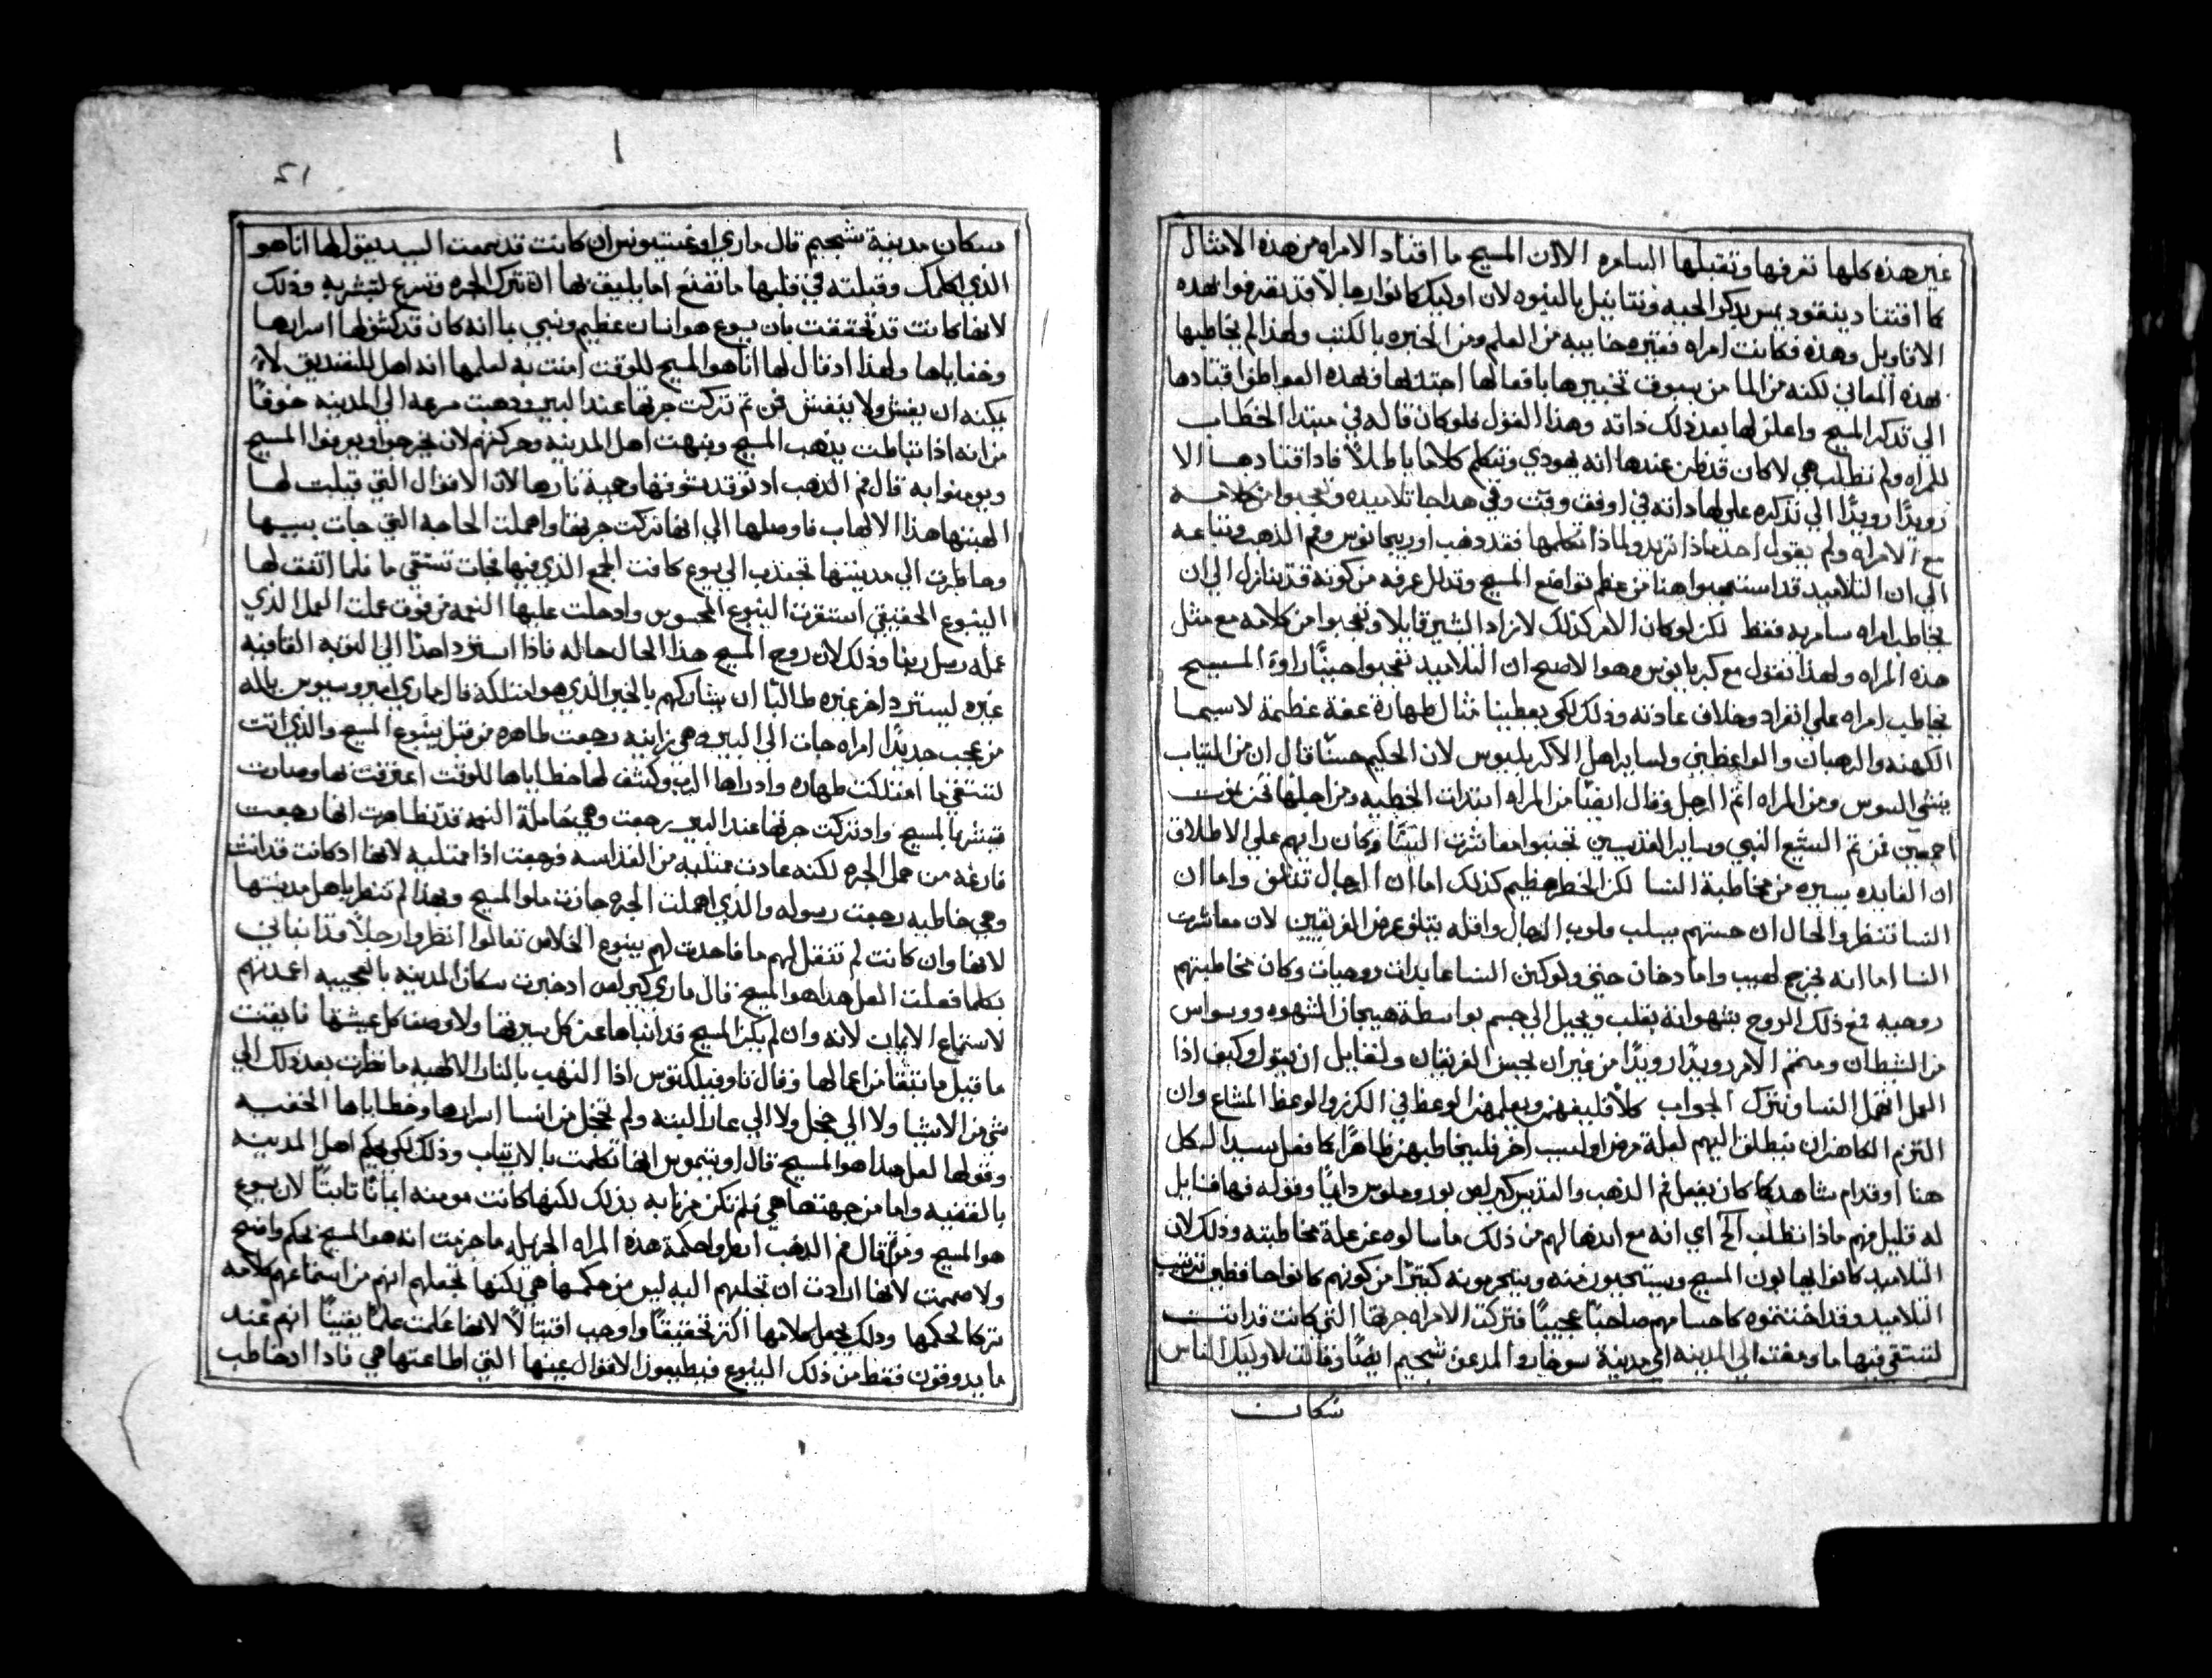 غير هذه كلها تعرفها وتقبلها السامره الا ان المسيح ما اقتاد الامراه من هذه الامثال
كما اقتاد ينقوديمس بذكر الحيه ونتانييل بالنبوه لان اوليك كانوا رجالاً قد تقدموا بهذه
الاقاويل وهذه فكانت امراه فقيره خاييبه من العلم ومن الخبره بالكتب ولهذا لم يخاطبها
بهذه المعاني لكنه من الما من سوف تخبيرها بافعالها اجتذبها فبهذه العواطف اقتادها
الي تذكر المسيح واعلن لها بعد ذلك ذاته وهذا القول فلو كان قاله في مبتدا الخطاب
للمراه ولم تطلب هي لا كان قد ظن عندها انه يهودي وتتكلم كلاما باطلاً فاذ اقتادها الا
رويدًا رويدًا الي تذكره علي لها ذاته في اوفق وقت وفي هذا جا تلاميذه وتعجبوا من كلامه
مع الامراه ولم يقول احد ماذا تريد ولماذا تكلمها فقد ذهب اوريجانوس وفم الذهب وتباعه
الي ان التلاميذ قد استعجبوا هنا من عظم تواضع المسيح وتدلل عرفه من كونه قد يتنازل الي ان
يخاطب امراه سامريه فقط لكن لو كان الامر كذلك لا زاد البشير قايلا وتعجبوا من كلامه مع مثل
هذه المراه ولهذا نقول مع كبريانوس وهو الاصح ان التلاميذ تعجبوا حينًا راوه المسيح
يخاطب امراه علي انفراد وخلاف عادته وذلك لكي يعطينا مثال طهارة عفة عظيمة لاسيما
الكهنه والرهبان والواعظين ولساير اهل الاكريليوس لان الحكيم حسنًا قال ان من الثياب
ينشي السوس ومن المراه اثم الرجل وقال ايضًا من المراه ابتدات الخطيه ومن اجلها نحن نموت
اجمعين فمن ثم اليشع النبي وساير القديسين تجنبوا معاشرت النسا وكان رايهم علي الاطلاق
ان الفايده يسيره من مخاطبة النسا لكن الخطر عظيم كذلك اما ان الرجال تنافق واما ان
النسا تنظر والحال ان حسنهم يسلب قلوب الرجال واقله يتلف عرض الفريقين لان معاشرت
النسا اما انه يخرج لهيب واما دخان حتي ولو كن النسا عابدات روحيات وكان مخاطبتهم
روحيه فمع ذلك الروح بسهوانة يقلب ويحيل الي جسم بواسطة هيجان الشهوه ووسواس
من الشطان ومتم الامر رويدًا رويدًا من غير ان يحس الفريقان ولقايل ان يقول وكيف اذا
العل انهمل النسا ونترك الجواب كلا فليفهم ويعلمهن الوعظ في الكرز والوعظ المشاع وان
التزم الكاهن ان ينطلق اليهم لعلة مرض او لسبب اخر فليخاطبهن ظاهرًا كما فعل سيد الكل
هنا او قدام شاهد كما كان يفعل فم الذهب والقديس كيرلص بود وجلوس دايمًا وقوله فيها قايل
له قليل منهم ماذا تطلب الخ اي انه مع اندهالهم من ذلك ما سالوه عن علة مخاطبته وذلك لان
التلاميذ كانوا يهابون المسيح ويستحيون منه ويتحرمونه كثيرًا من كونهم كانوا حافظين ترتيب
التلاميذ وقد احتشموه كاحتسامهم صاحبًا عجيبًا فتركت الامراه جرتها التي كانت قد اتت
لتستقي فيها ما ومضت الي المدينه اي مدينة سوخار والمدعن شجيم ايضًا وقالت لاوليك الناس
سكان
12
سكان مدينة شجيم قال ماري اوغستينوس ان كانت قد سمعت السيد يقول لها انا هو
الذي اكلمك وقبلته في قلبها ما تصنع اما يليق بها ان تترك الجره وتسرع لتبشر به وذلك
لانها كانت قد تحققت بان يسوع هو انسان عظيم ونبي بما انه كان قد كشف لها اسرارها
وخفاياها ولهذا اذ قال لها انا هو المسيح للوقت امنت به لعلمها انه اهل للتصديق لا
يمكنه ان يغش ولا ينغش فمن ثم تركت جرتها عند البير وذهبت مسرعه الي المدينه خوفًا
من انه اذا تباطت يذهب المسيح ونبهت اهل المدينه وحركتهم لان يخرجوا ويعرفوا المسيح
ويومنوا به قال فم الذهب اذ توقد شوقها وهيه نارها لان الاقوال التي قبلت لها
الهبتها هذا الالهاب فاوصلها الي انها تركت جرتها واهملت الحاجه التي جات بسببها
وحاظرت الي مدينتها تجتذب الي يسوع كافت الجمع الذي فيها فجات تستقي ما فلما اتفقت لها
الينبوع الحقيقي استقرت الينبوع المحسوس واذ حلت عليها النعمه من فوق عملت العمل الذي
عمله رسل ربنا وذلك لان روح المسيح هذا الحال حاله فاذا استرد احدًا الي التوبه القافيه
غيره ليسترد اخر غيره طالبًا ان يشاركهم بالخير الذي هو امتلكه قال ماري امبروسيوس ياله
من عجب جديدًا امراه جات الي البير وهي زانيه رجعت طاهره من قبل ينبوع المسيح والذي اتت
لتستقي ما امتلكت طهاره واذ راها الرب وكشف لها خطاياها للوقت اعترفت بها وصارت
فتبشر بالمسيح واذ تركت جرتها عند البير رجعت وهي حاملة النعمه قد تظاهرت انها رجعت
فارغه من حمل الجره لكنه عادت ممتليه من القداسه فرجعت اذا ممتليه لانها اذ كانت قد اتت
وهي خاطيه رجعت رسوله والذي اهملت الجره حازت ملو المسيح وبهذا لم تنضر باهل مدينتها
لانها وان كانت لم تنقل لهم ما فاحدت لهم ينبوع الخلاص تعالوا انظروا رجلاً قد انباني
بكلما فعلت العل هذا هو المسيح قال ماري كيرلص اذ خبرت سكان المدينه بالعجيبه اعدتهم
لاستماع الايمان لانه وان لم يكن المسيح قد انباها عن كل سيرتها ولا وصف كل عيشتها فايقنت
ما قيل مما نبتها من اعمالها وقال تاوفيلكتوس اذا التهب بالنار الالهيه ما نظرت بعد ذلك الي
شي من الاشيا ولا الي خجل ولا الي عار البته ولم تخجل من افشا اسرارها وخطاياها الخفيه
وقولها لعل هذا هو المسيح قال اوتيموس انها تكلمت بالارتياب وذلك لكي يحكم اهل المدينه
بالقضيه واما من جهتها هي فلم تكن مرتابه بذلك لكنها كانت مومنه ايمانًا ثابتًا لان يسوع
هو المسيح ومن ثم قال فم الذهب انظروا حكمة هذه المراه الجزيله ما جزمت انه هو المسيح بحكم واضح
ولا صمتت لانها ارادت ان تجلبهم اليه ليس من حكمها هي لكنها تجعلهم انهم من استماعهم كلامه
شركا لحكمها وذلك يجعل كلامها اكثر تحقيقًا واوجب اقتبالاً لانها علمت علمًا يقينًا انهم عند
ما يذوقون فقط من ذلك الينبوع فيطيعون الاقوال عينها التي اطاعتها هي فاذا اذ خاطب